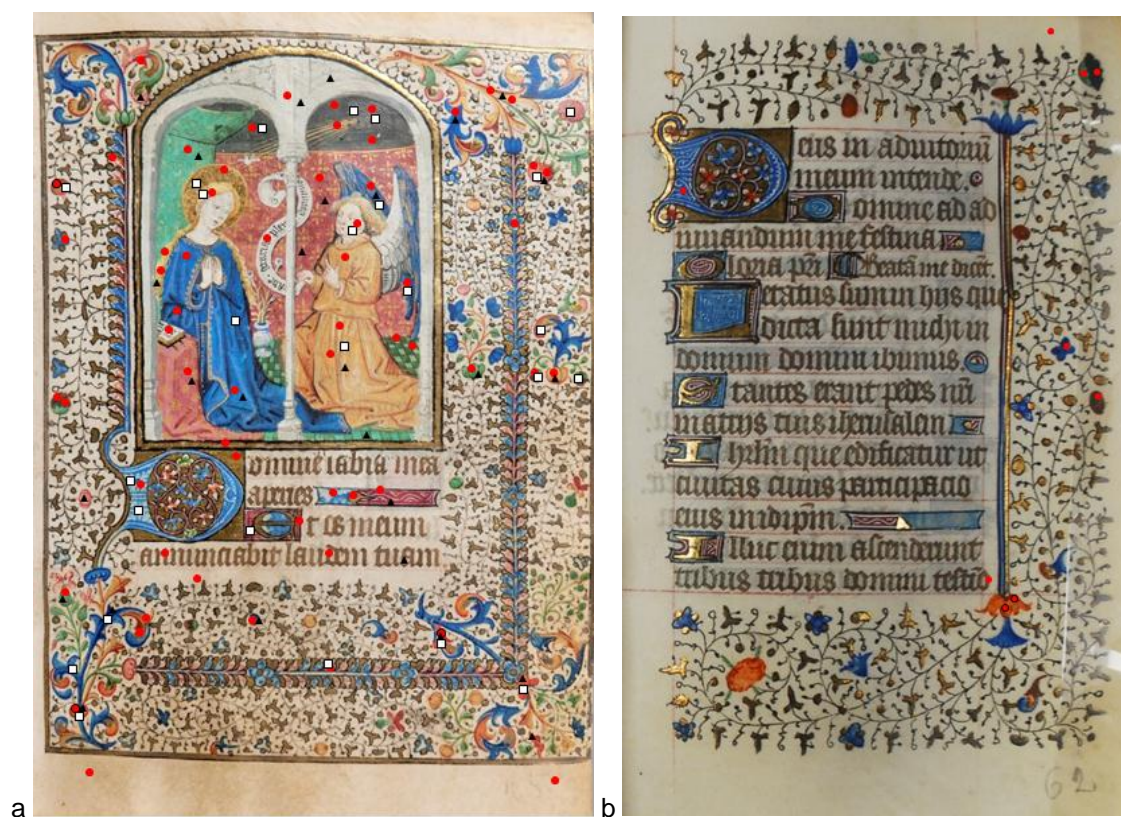 a
Domine labia mea
aperies
Et os meum
annunciabit laudem tuam
b
Deus in adiutoriū
meum intende.
Domine ad ad
iuuandum me festina
Gloria pri Beatā me dicēt.
Letatus sum in hijs que
dicta sunt michi in
domum domini ibimus.
Stantes erant pedes nri
in atrijs tuis iherusalem
Ihrlm que edificatur ut
ciuitas cuius participacio
eius in idipm.
Illuc enim ascenderunt
tribus tribus domini
62